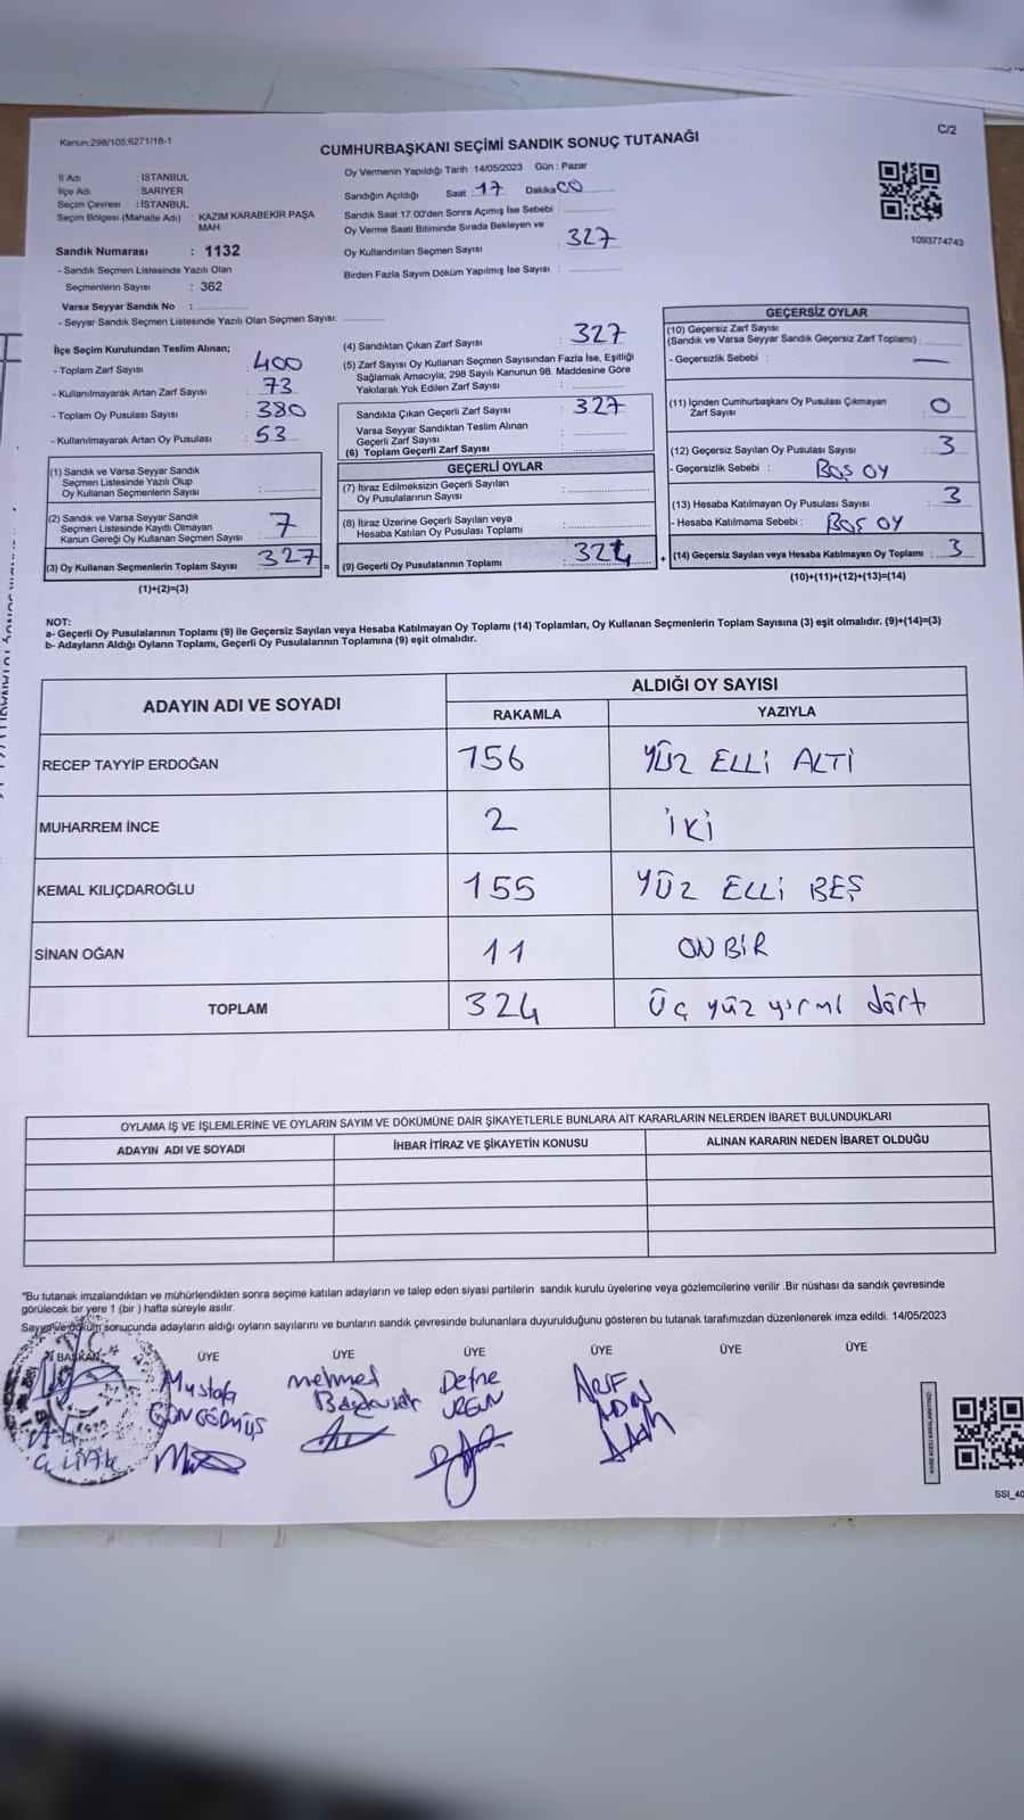 Kanun:298/105;6271/18-1
C/2
CUMHURBAŞKANI SEÇİMİ SANDIK SONUÇ TUTANAĞI
İl Adı : İSTANBUL
İlçe Adı : SARIYER
Seçim Çevresi : İSTANBUL
Seçim Bölgesi (Mahalle Adı) KAZIM KARABEKİR PAŞA MAH
Sandık Numarası : 1132
- Sandık Seçmen Listesinde Yazılı Olan
Seçmenlerin Sayısı : 362
Varsa Seyyar Sandık No :
- Seyyar Sandık Seçmen Listesinde Yazılı Olan Seçmen Sayısı:
Oy Vermenin Yapıldığı Tarih :14/05/2023 Gün : Pazar
Sandığın Açıldığı Saat : 17 Dakika 00
Sandık Saat 17.00'den Sonra Açımış İse Sebebi
Oy Verme Saati Bitiminde Sırada Bekleyen ve
Oy Kullandırılan Seçmen Sayısı 327
Birden Fazla Sayım Döküm Yapılmış İse Sayısı :
1093774743
İlçe Seçim Kurulundan Teslim Alınan;
- Toplam Zarf Sayısı : 400
- Kullanılmayarak Artan Zarf Sayısı 73
- Toplam Oy Pusulası Sayısı : 380
- Kullanılmayarak Artan Oy Pusulası : 53
(1) Sandık ve Varsa Seyyar Sandık
Seçmen Listesinde Yazılı Olup
Oy Kullanan Seçmenlerin Sayısı :
(2) Sandık ve Varsa Seyyar Sandık
Seçmen Listesinde Kayıtlı Olmayan
Kanun Gereği Oy Kullanan Seçmen Sayısı 7
(3) Oy Kullanan Seçmenlerin Toplam Sayısı 327 =
(1)+(2)=(3)
(4) Sandıktan Çıkan Zarf Sayısı : 327
(5) Zarf Sayısı Oy Kullanan Seçmen Sayısından Fazla İse, Eşitliği
Sağlamak Amacıyla, 298 Sayılı Kanunun 98. Maddesine Göre
Yakılarak Yok Edilen Zarf Sayısı :
Sandıkta Çıkan Geçerli Zarf Sayısı : 327
Varsa Seyyar Sandıktan Teslim Alınan
Geçerli Zarf Sayısı :
(6) Toplam Geçerli Zarf Sayısı :
GEÇERLİ OYLAR
(7) İtiraz Edilmeksizin Geçerli Sayılan
Oy Pusulalarının Sayısı :
(8) İtiraz Üzerine Geçerli Sayılan veya
Hesaba Katılan Oy Pusulası Toplamı :
(9) Geçerli Oy Pusulalarının Toplamı : 324 +
GEÇERSİZ OYLAR
(10) Geçersiz Zarf Sayısı
(Sandık ve Varsa Seyyar Sandık Geçersiz Zarf Toplamı) :
- Geçersizlik Sebebi : —
(11) İçinden Cumhurbaşkanı Oy Pusulası Çıkmayan
Zarf Sayısı : 0
(12) Geçersiz Sayılan Oy Pusulası Sayısı : 3
- Geçersizlik Sebebi : BOŞ OY
(13) Hesaba Katılmayan Oy Pusulası Sayısı : 3
- Hesaba Katılmama Sebebi : BOŞ OY
(14) Geçersiz Sayılan veya Hesaba Katılmayan Oy Toplamı : 3
(10)+(11)+(12)+(13)=(14)
NOT:
a- Geçerli Oy Pusulalarının Toplamı (9) ile Geçersiz Sayılan veya Hesaba Katılmayan Oy Toplamı (14) Toplamları, Oy Kullanan Seçmenlerin Toplam Sayısına (3) eşit olmalıdır. (9)+(14)=(3)
b- Adayların Aldığı Oyların Toplamı, Geçerli Oy Pusulalarının Toplamına (9) eşit olmalıdır.
ADAYIN ADI VE SOYADI
ALDIĞI OY SAYISI
RAKAMLA YAZIYLA
RECEP TAYYİP ERDOĞAN 156 YÜZ ELLİ ALTI
MUHARREM İNCE 2 İKİ
KEMAL KILIÇDAROĞLU 155 YÜZ ELLİ BEŞ
SİNAN OĞAN 11 ON BİR
TOPLAM 324 Üç yüz yirmi dört
OYLAMA İŞ VE İŞLEMLERİNE VE OYLARIN SAYIM VE DÖKÜMÜNE DAİR ŞİKAYETLERLE BUNLARA AİT KARARLARIN NELERDEN İBARET BULUNDUKLARI
ADAYIN ADI VE SOYADI İHBAR İTİRAZ VE ŞİKAYETİN KONUSU ALINAN KARARIN NEDEN İBARET OLDUĞU
"Bu tutanak imzalandıktan ve mühürlendikten sonra seçime katılan adayların ve talep eden siyasi partilerin sandık kurulu üyelerine veya gözlemcilerine verilir .Bir nüshası da sandık çevresinde
görülecek bir yere 1 (bir ) hafta süreyle asılır.
Sayım ve döküm sonucunda adayların aldığı oyların sayılarını ve bunların sandık çevresinde bulunanlara duyurulduğunu gösteren bu tutanak tarafımızdan düzenlenerek imza edildi. 14/05/2023
BAŞKAN ÜYE ÜYE ÜYE ÜYE ÜYE ÜYE
Mustafa GÜNGÖRMÜŞ
mehmed
Defne